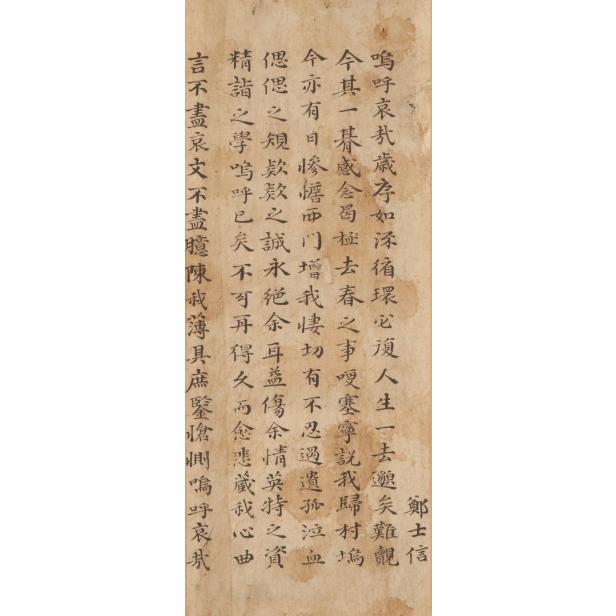 鄭士信
嗚呼哀哉歲序如流循環必復人生一去邈矣難覿
今其一朞感念曷極去春之事哽塞寧説我歸村塢
今亦有日慘憺西門增我悽切有不忍過遺孤泣血
偲偲之規欵欵之誠永絶余耳益傷余情英特之資
精詣之學嗚呼已矣不可再得久而愈悲蔵我心曲
言不盡哀文不盡臆陳我薄具庶鑒愴惻嗚呼哀哉